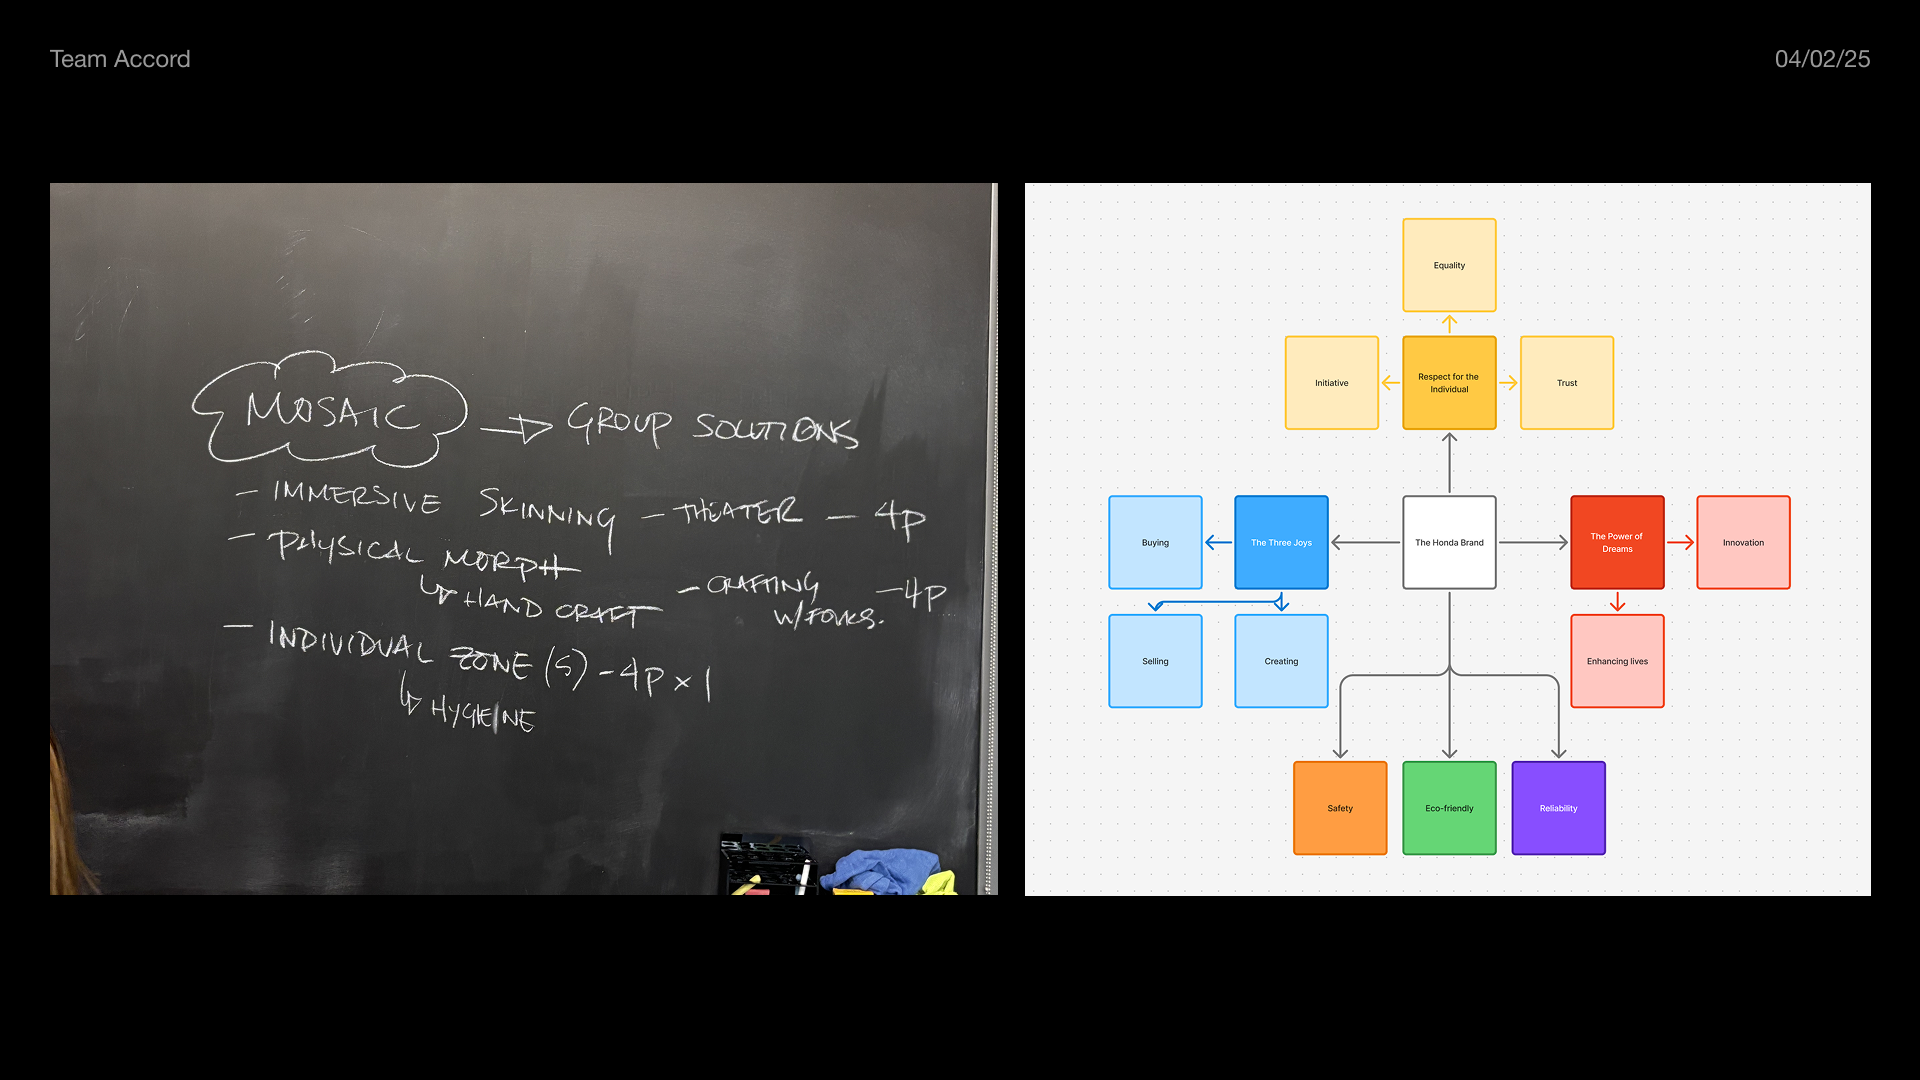 Team Accord
04/02/25
MOSAIC → GROUP SOLUTIONS
– IMMERSIVE SKINNING – THEATER – 4P
– PHYSICAL MORPH
↳ HAND CRAFT – CRAFTING – 4P
W/FOLKS.
– INDIVIDUAL ZONE(S) – 4P × 1
↳ HYGIENE
Equality
Initiative
Respect for the
Individual
Trust
Buying
The Three Joys
The Honda Brand
The Power of
Dreams
Innovation
Selling
Creating
Enhancing lives
Safety
Eco-friendly
Reliability